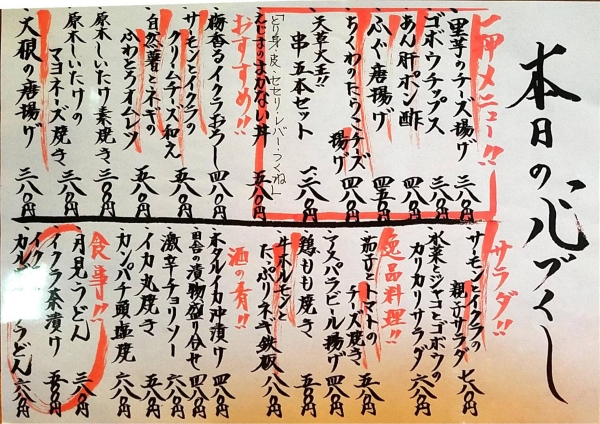 本日の心づくし
里芋のチーズ揚げ 三八〇円
ゴボウチップス 三八〇円
あん肝ポン酢 四八〇円
ふぐ唐揚げ 四五〇円
ちくわのたらこチーズ揚げ 四八〇円
天草大王!! 串五本セット
「とり身・皮・セセリ・レバー・つくね」
まかない丼 五八〇円
おすすめ!!
梅香るイクラおろし 四八〇円
サーモンとイクラのクリームチーズ和え 五八〇円
自然薯とネギのふわとろオムレツ 五八〇円
原木しいたけ素焼き 三八〇円
原木しいたけのマヨネーズ焼き 三八〇円
大根の唐揚げ 三八〇円
サラダ!!
サーモンとイクラの親子サラダ 七八〇円
水菜とジャコとゴボウのカリカリサラダ 六八〇円
逸品料理!!
茄子とトマトのチーズ焼き 五八〇円
アスパラビール揚げ 四八〇円
鶏もも焼き 五八〇円
牛ホルモンとたっぷりネギ鉄板 八八〇円
酒の肴!!
ホタルイカ沖漬け 四八〇円
田舎の漬物盛り合せ 四八〇円
激辛チョリソー 六八〇円
イカ丸焼き 五八〇円
カンパチ頭塩焼 六八〇円
食事!!
月見うどん 三八〇円
イクラ茶漬け 五八〇円
うどん 六八〇円